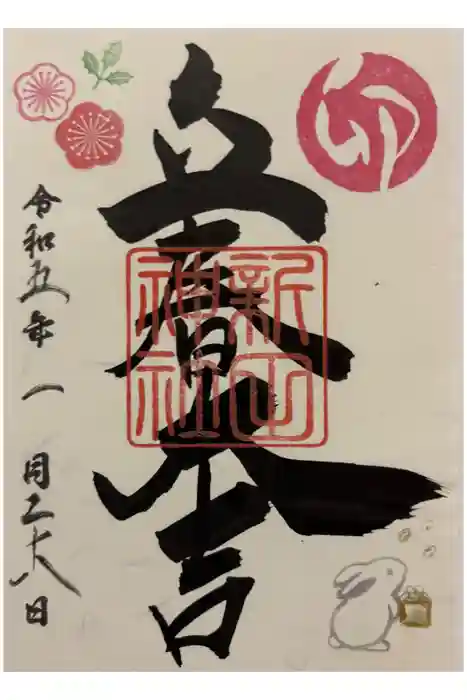 卯
立春大吉
新
神社
令和五年一月二十八日